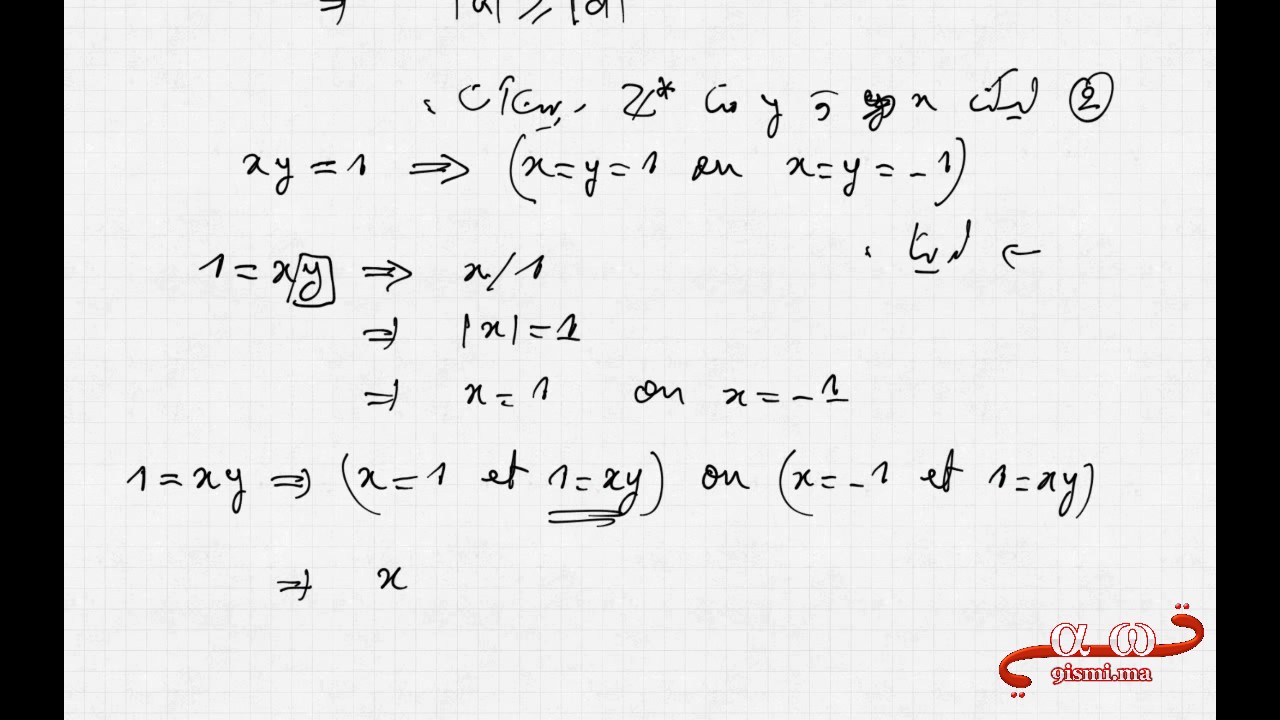 ⇒ |a| ≥ |d|
② ليكن x و y من Z* بحيث :
xy = 1 ⇒ (x = y = 1 ou x = y = -1)
← لدينا :
1 = xy ⇒ x/1
⇒ |x| = 1
⇒ x = 1 ou x = -1
1 = xy ⇒ (x = 1 et 1 = xy) ou (x = -1 et 1 = xy)
⇒ x
α ω
gismi.ma